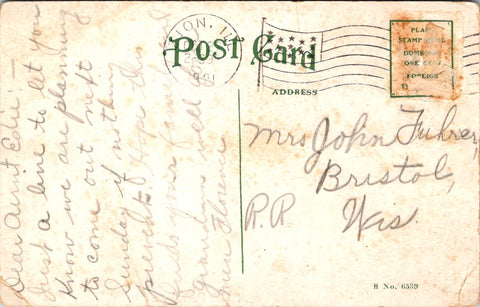 Dear Aunt Edie -
Just a line to let you
Know we are planning
to come out next
Sunday if nothing
prevents. Hope this
finds you &
Grandma well
Florence
POST CARD
ADDRESS
PLACE
STAMP HERE
DOMESTIC
ONE CENT
FOREIGN
Mrs John Fuhrer,
Bristol,
R.R Wis
R No. 6539